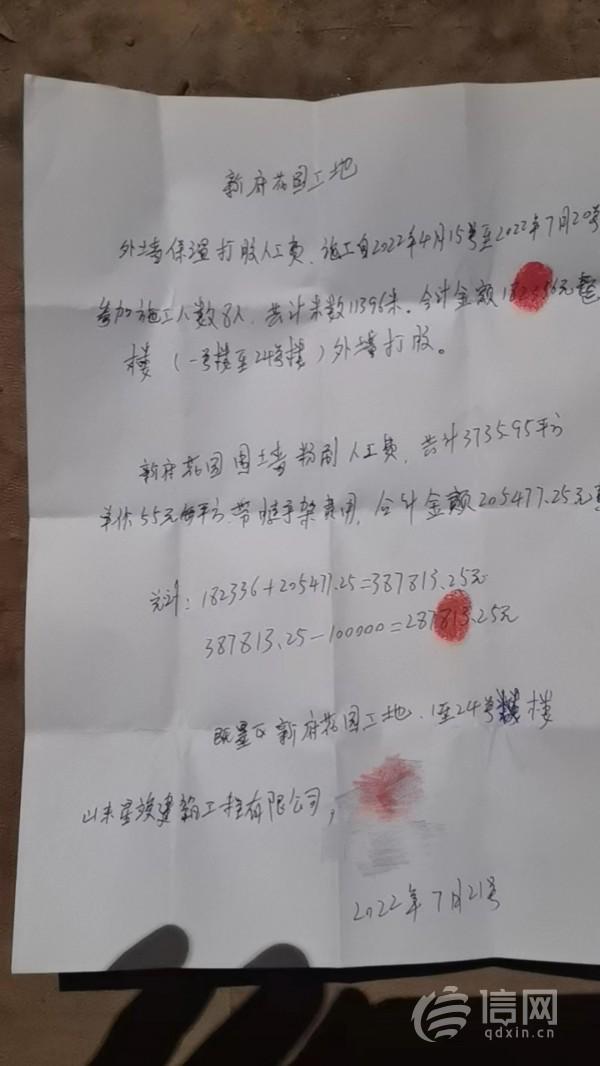 新府花园工地
外墙保温打胶人工费、施工自2022年4月15号至2022年7月20号
参加施工人数8人、共计米数11396米。合计金额182336元
楼(一号楼至24号楼)外墙打胶。
新府花园围墙粉刷人工费、共计3735.95平方
单价55元每平方、带脚手架费用、合计金额205477.25元
总计:182336+205477.25=387813.25元
387813.25-100000=287813.25元
新府花园工地、1至24号楼
山东 建筑工程有限公司,
2022年7月21号
信网
qdxin.cn